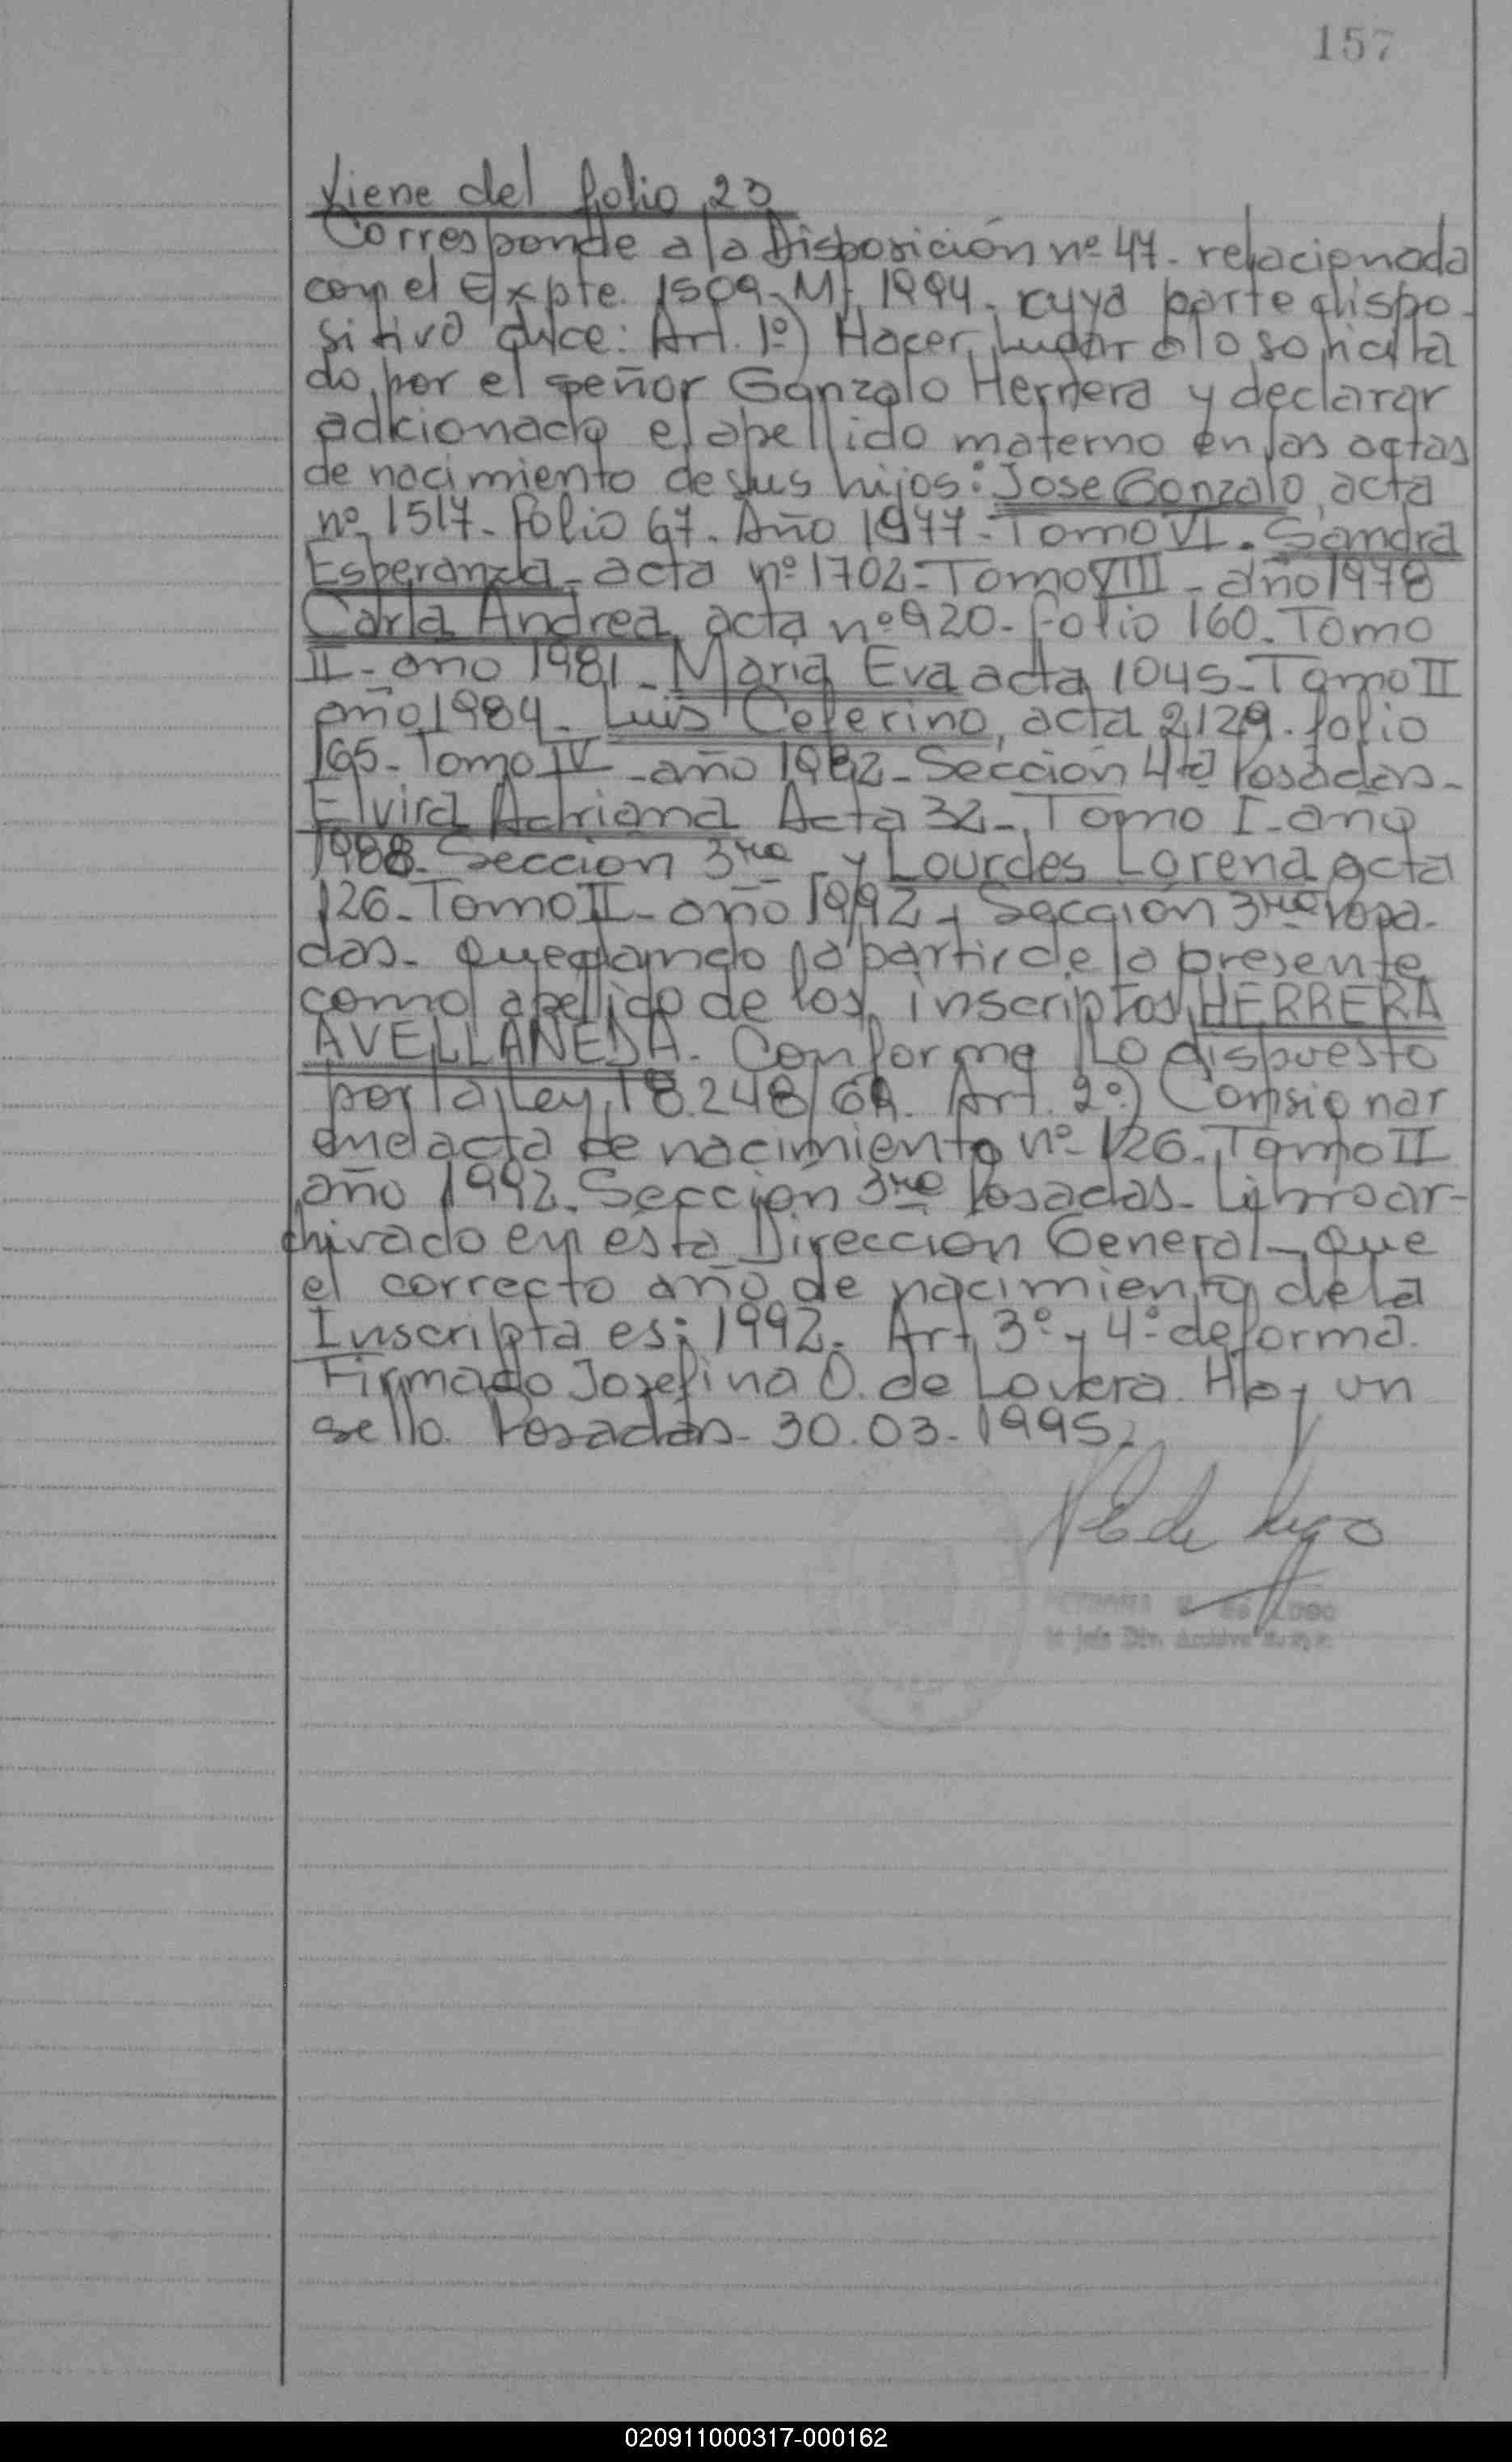 157
Viene del folio 23
Corresponde a la Disposición nº 47. relacionada
con el Expte. 1509-M-1994. cuya parte dispo-
sitiva dice: Art. 1º) Hacer lugar a lo solicita
do por el señor Gonzalo Herrera y declarar
adicionado el apellido materno en las actas
de nacimiento de sus hijos: Jose Gonzalo, acta
nº 1517- folio 67. Año 1977- Tomo VI. Sandra
Esperanza- acta nº 1702- Tomo VIII - año 1978
Carla Andrea, acta nº 920- folio 160- Tomo
II- año 1981- Maria Eva acta 1045- Tomo II
año 1984- Luis Ceferino, acta 2129. folio
165- Tomo IV - año 1982- Sección 4ta Posadas-
Elvira Adriana Acta 32- Tomo I- año
1988- Sección 3ra y Lourdes Lorena acta
126- Tomo II- año 1992- Sección 3ra Posa-
das- quedando a partir de la presente
como apellido de los inscriptos HERRERA
AVELLANEDA. Conforme lo dispuesto
por la ley 18.248/69. Art. 2º) Consignar
en el acta de nacimiento nº 126. Tomo II
año 1992. Sección 3ra Posadas- Libro ar-
chivado en ésta Dirección General- que
el correcto año de nacimiento de la
Inscripta es: 1992. Art 3º y 4º de forma.
Firmado Josefina O. de Lovera. Hay un
sello. Posadas- 30.03.1995.
de Lugo
de LUGO
Jefe Div. Archivo
020911000317-000162